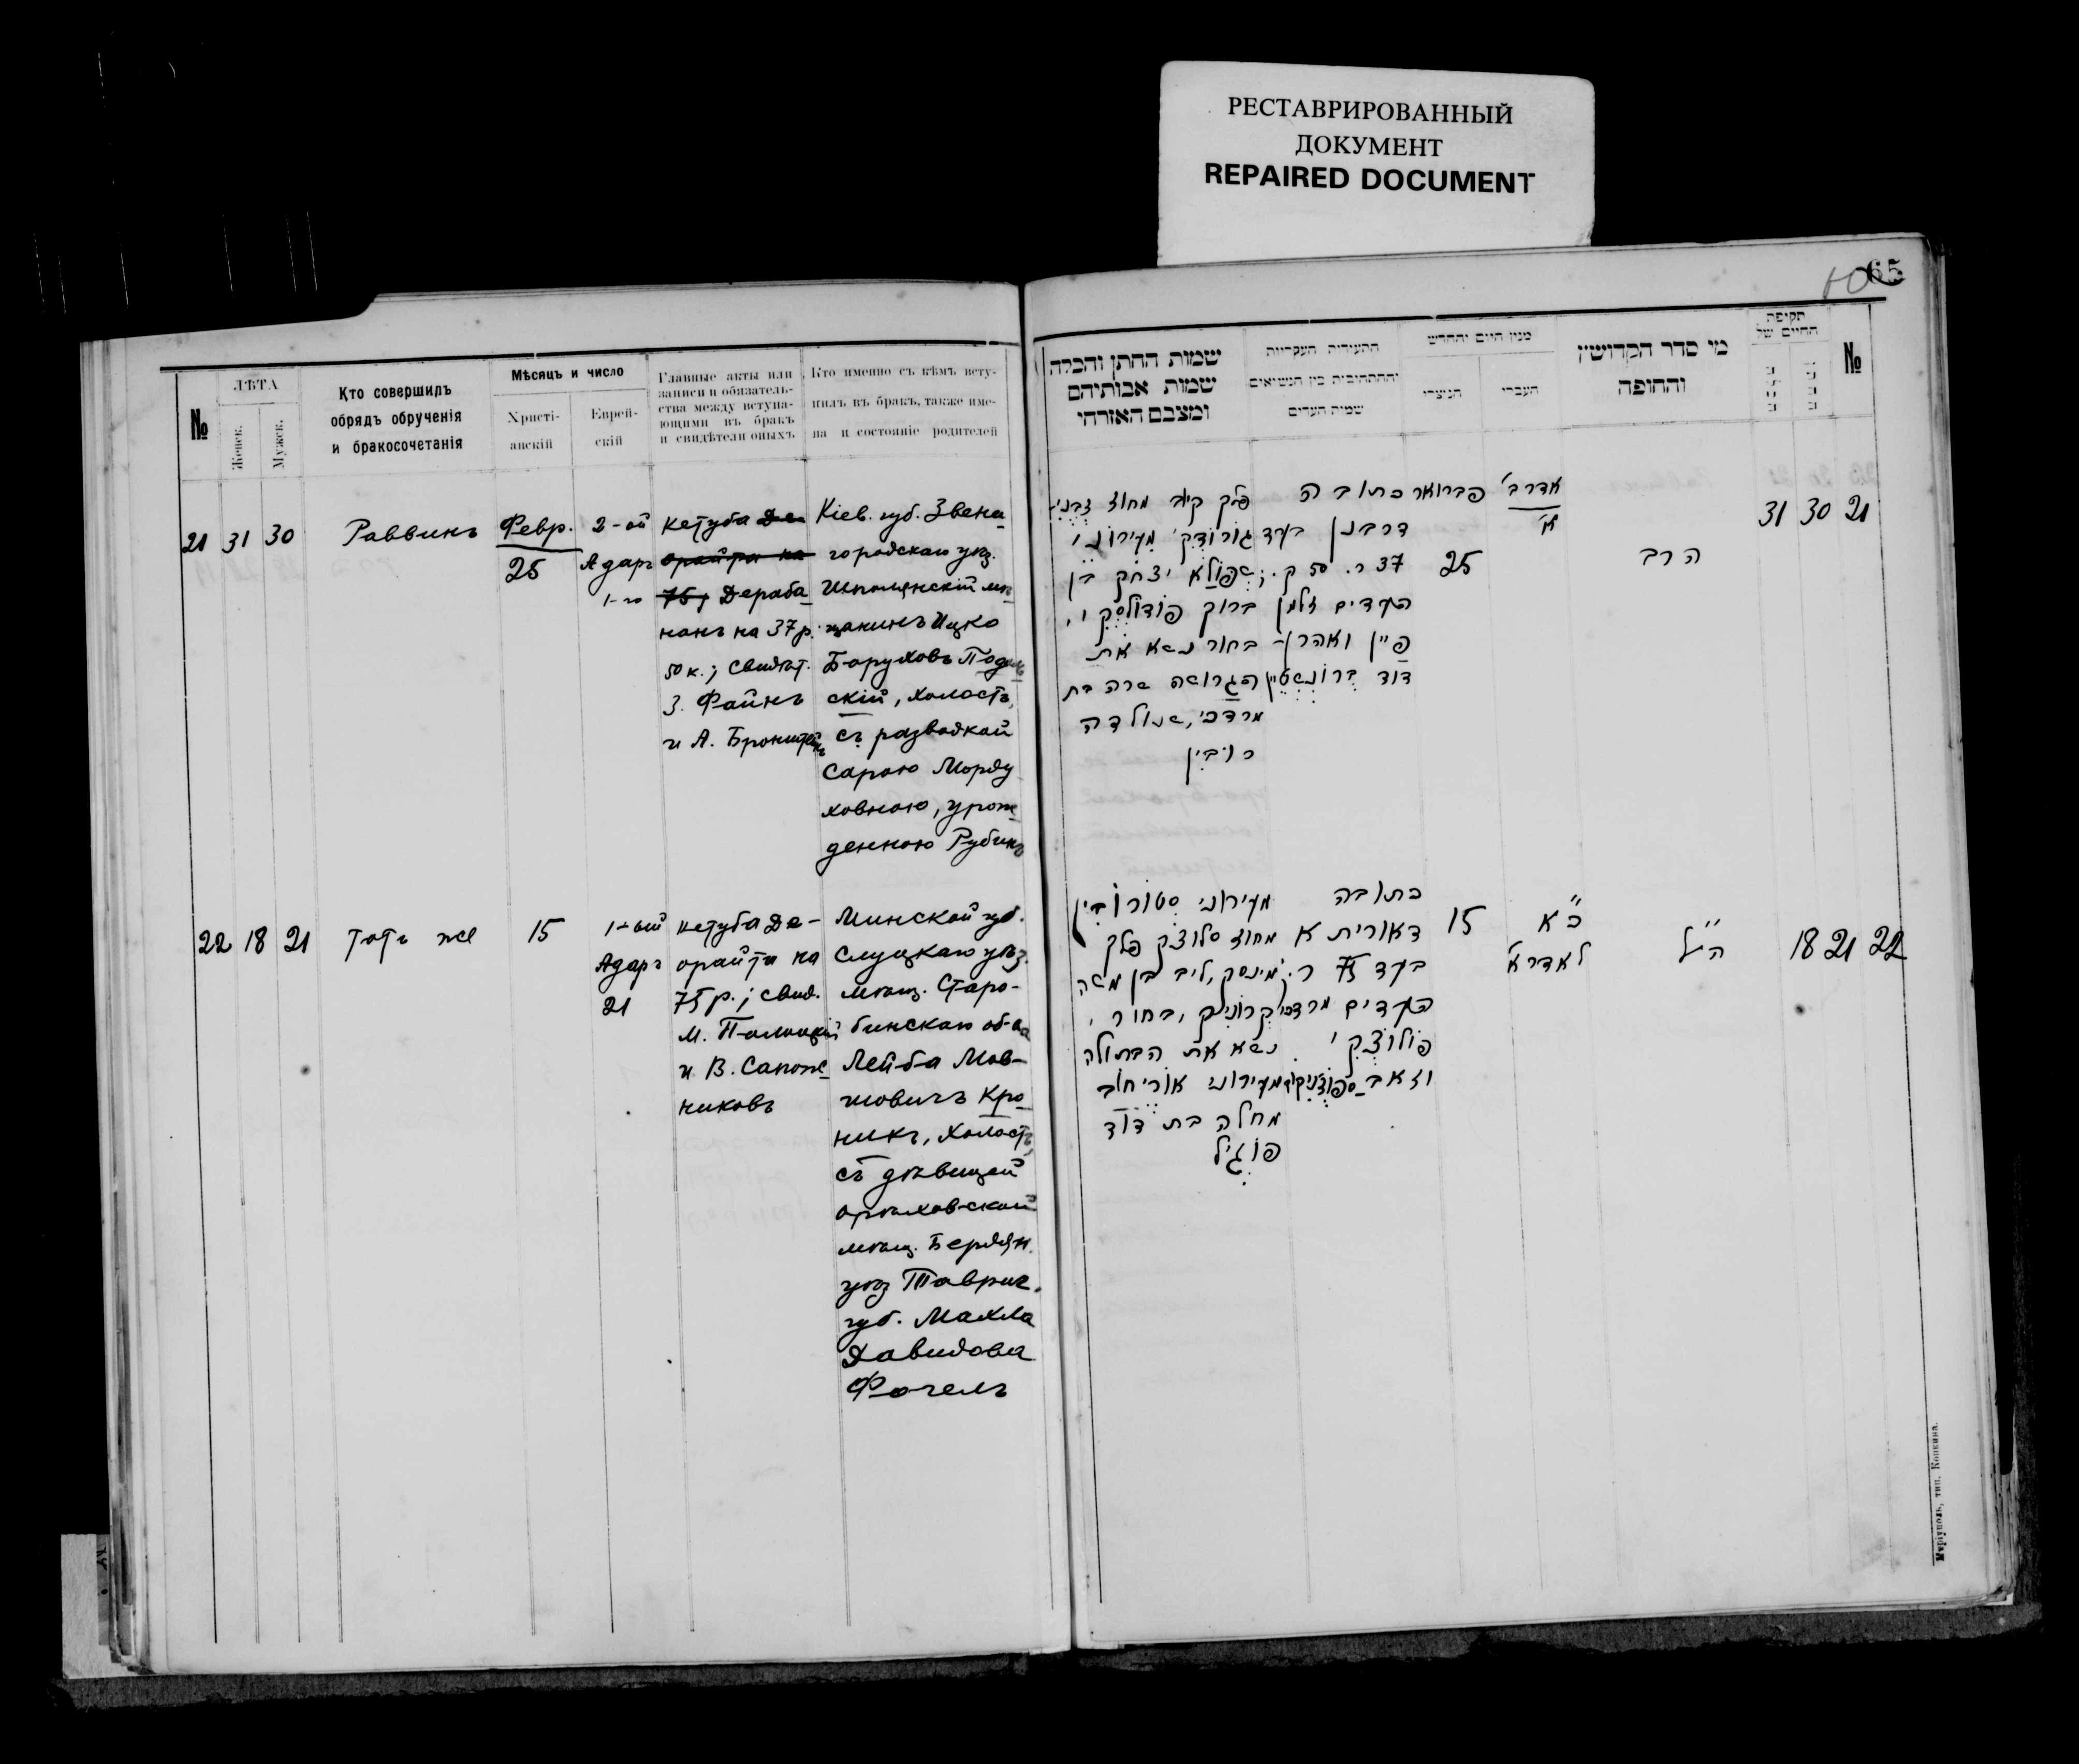 РЕСТАВРИРОВАННЫЙ
ДОКУМЕНТ
REPAIRED DOCUMENT
65
№
ЛѢТА
Женск.
Мужск.
Кто совершилъ
обрядъ обрученія
и бракосочетанія
Мѣсяцъ и число
Христі-
анскій
Еврей-
скій
Главные акты или
записи и обязатель-
ства между вступа-
ющими въ бракъ
и свидѣтели оныхъ
Кто именно съ кѣмъ всту-
пилъ въ бракъ, также име-
на и состояніе родителей
21
31
30
Раввинъ
Февр.
25
2-ой
Адаръ
1-го
Кетуба Де
орайта на
75; Дераба
нанъ на 37 р.
50 к.; свидѣт.
З. Файнъ
и А. Бронштейнъ
Кіев. губ. Звени
городскаго уѣз.
Шполянскій мѣ
щанинъ Ицко
Боруховъ Подоль
скій, холостъ,
съ разводкой
Сарою Морду
ховною, урож
денною Рубинъ
22
18
21
Тотъ же
15
1-ый
Адаръ
21
Кетуба Де-
орайта на
75 р.; свид.
М. Полоцкій
и В. Сапож
никовъ
Минской губ.
Слуцкаго уѣз.
мѣщ. Старо-
бинскаго об-ва
Лейба Мов-
шовичъ Кро
никъ, холостъ,
съ дѣвицей
орѣховской
мѣщ. Бердян.
уѣз Таврич.
губ. Махла
Давидова
Фогель
שמות החתן והכלה
שמות אבותיהם
ומצבם האזרחי
התעודות העקריות
וההתחיבות בין הנשואים
שמות העדים
מנין היום והחדש
הנוצרי
העברי
מי סדר הקדושין
והחופה
תקופת
החיים של
№
פלך קיוב מחוז זבני־
גורודקי מעירוני
שפולא יצחק בן
ברוך פודולסקי,
בחור נשא את
הגרושה שרה בת
מרדכי, שנולדה
רובין
כתובה
דרבנן בעד
37 ר. 50 ק.;
העדים זלמן
פיין ואהרן־
דוד ברונשטיין
פברואר
25
אדר ב׳
א׳
הרב
31
30
21
מעירוני סטורובין
מחוז סלוצק פלך
מינסק, ליב בן משה
קרוניק, בחור,
נשא את הבתולה
מעירוני אוריחוב
מחלה בת דוד
פוגיל
כתובה
דאוריתא
בעד 75 ר.
העדים מרדכי
פולוצקי
וזאב ספוזניקוב
15
כ״א
לאדר א׳
הנ״ל
18
21
22
Маріуполь, тип. Копкина.